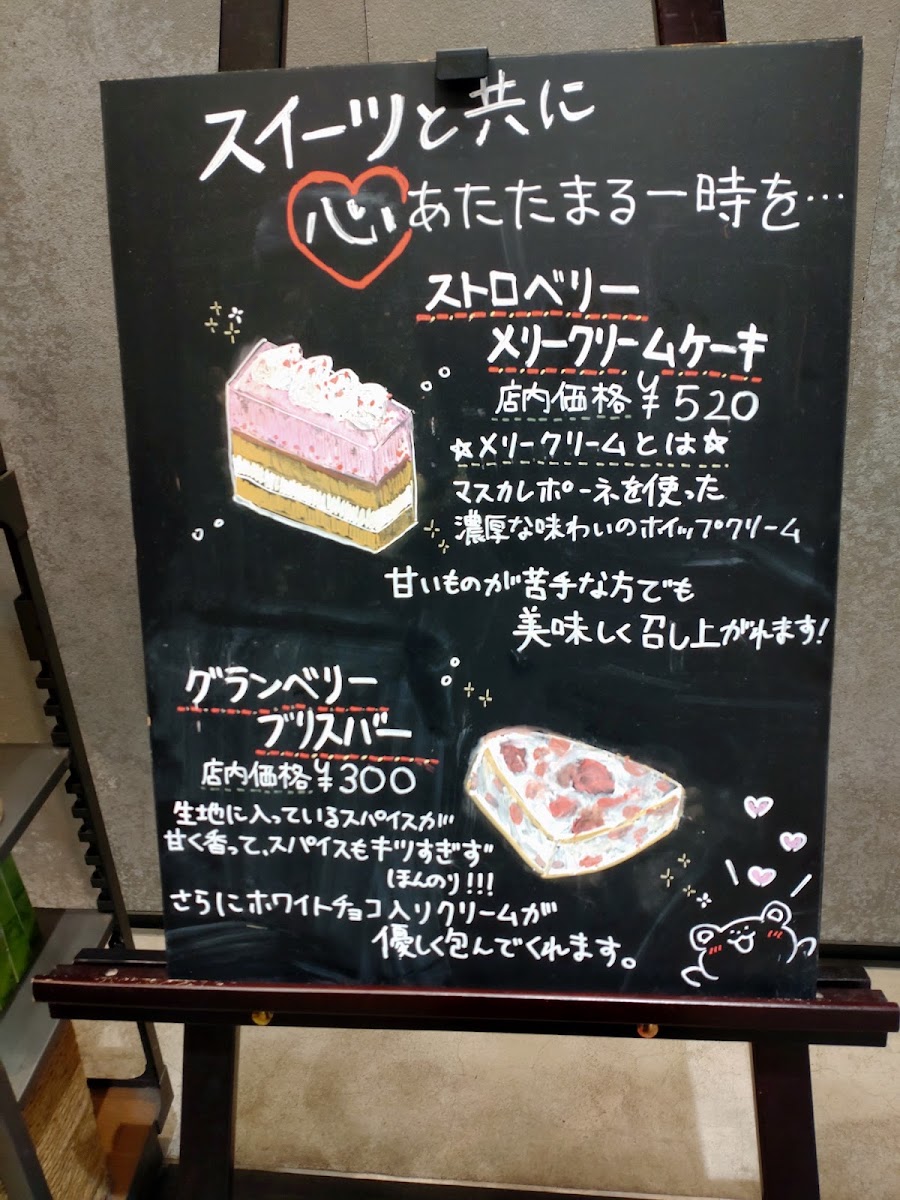 スイーツと共に
心あたたまる一時を…
ストロベリー
メリークリームケーキ
店内価格¥520
☆メリークリームとは☆
マスカレポーネを使った
濃厚な味わいのホイップクリーム
甘いものが苦手な方でも
美味しく召し上がれます!
グランベリー
ブリスバー
店内価格¥300
生地に入っているスパイスが
甘く香って、スパイスもキツすぎず
ほんのり!!!
さらにホワイトチョコ入りクリームが
優しく包んでくれます。